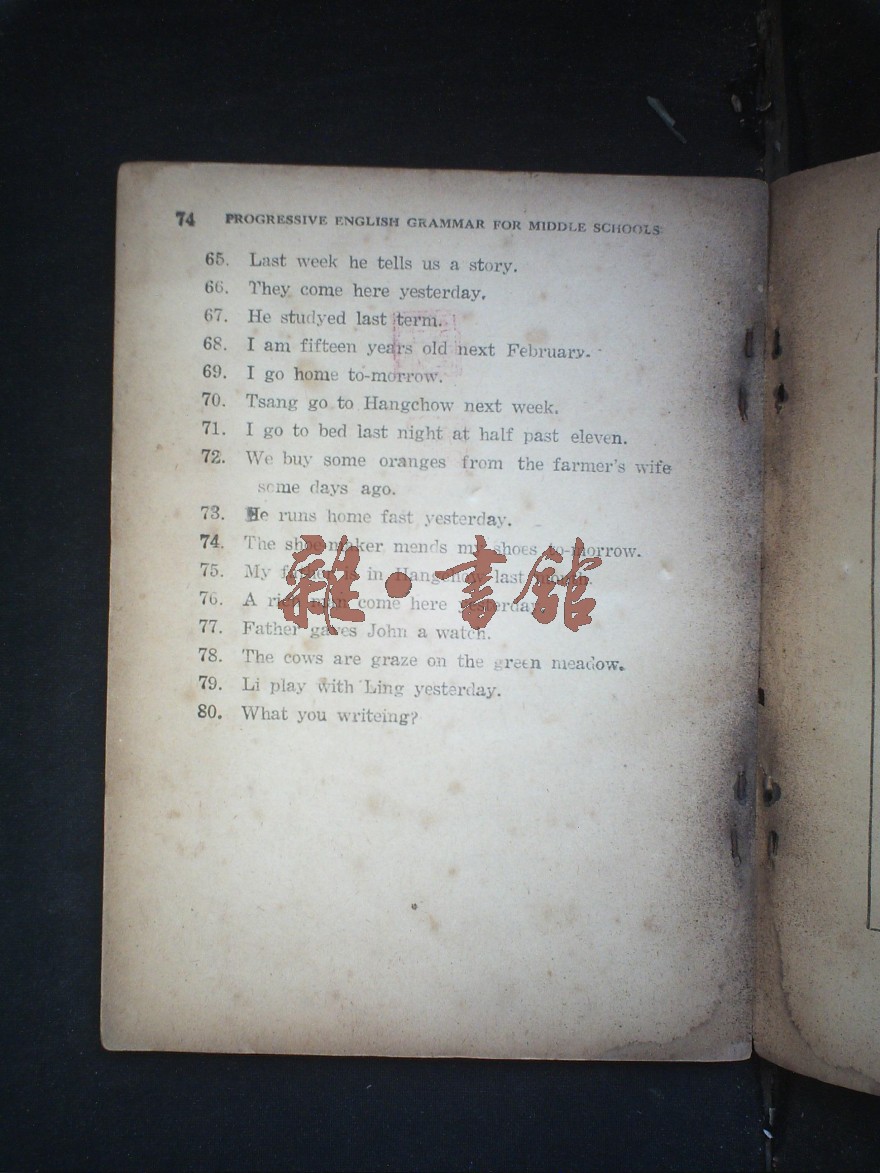 74 PROGRESSIVE ENGLISH GRAMMAR FOR MIDDLE SCHOOLS
65. Last week he tells us a story.
66. They come here yesterday.
67. He studyed last term.
68. I am fifteen years old next February.
69. I go home to-morrow.
70. Tsang go to Hangchow next week.
71. I go to bed last night at half past eleven.
72. We buy some oranges from the farmer's wife
some days ago.
73. He runs home fast yesterday.
74. The shoemaker mends my shoes to-morrow.
75. My father is in Hangchow last month.
76. A rich man come here yesterday.
77. Father gaves John a watch.
78. The cows are graze on the green meadow.
79. Li play with Ling yesterday.
80. What you writeing?
雜·書館